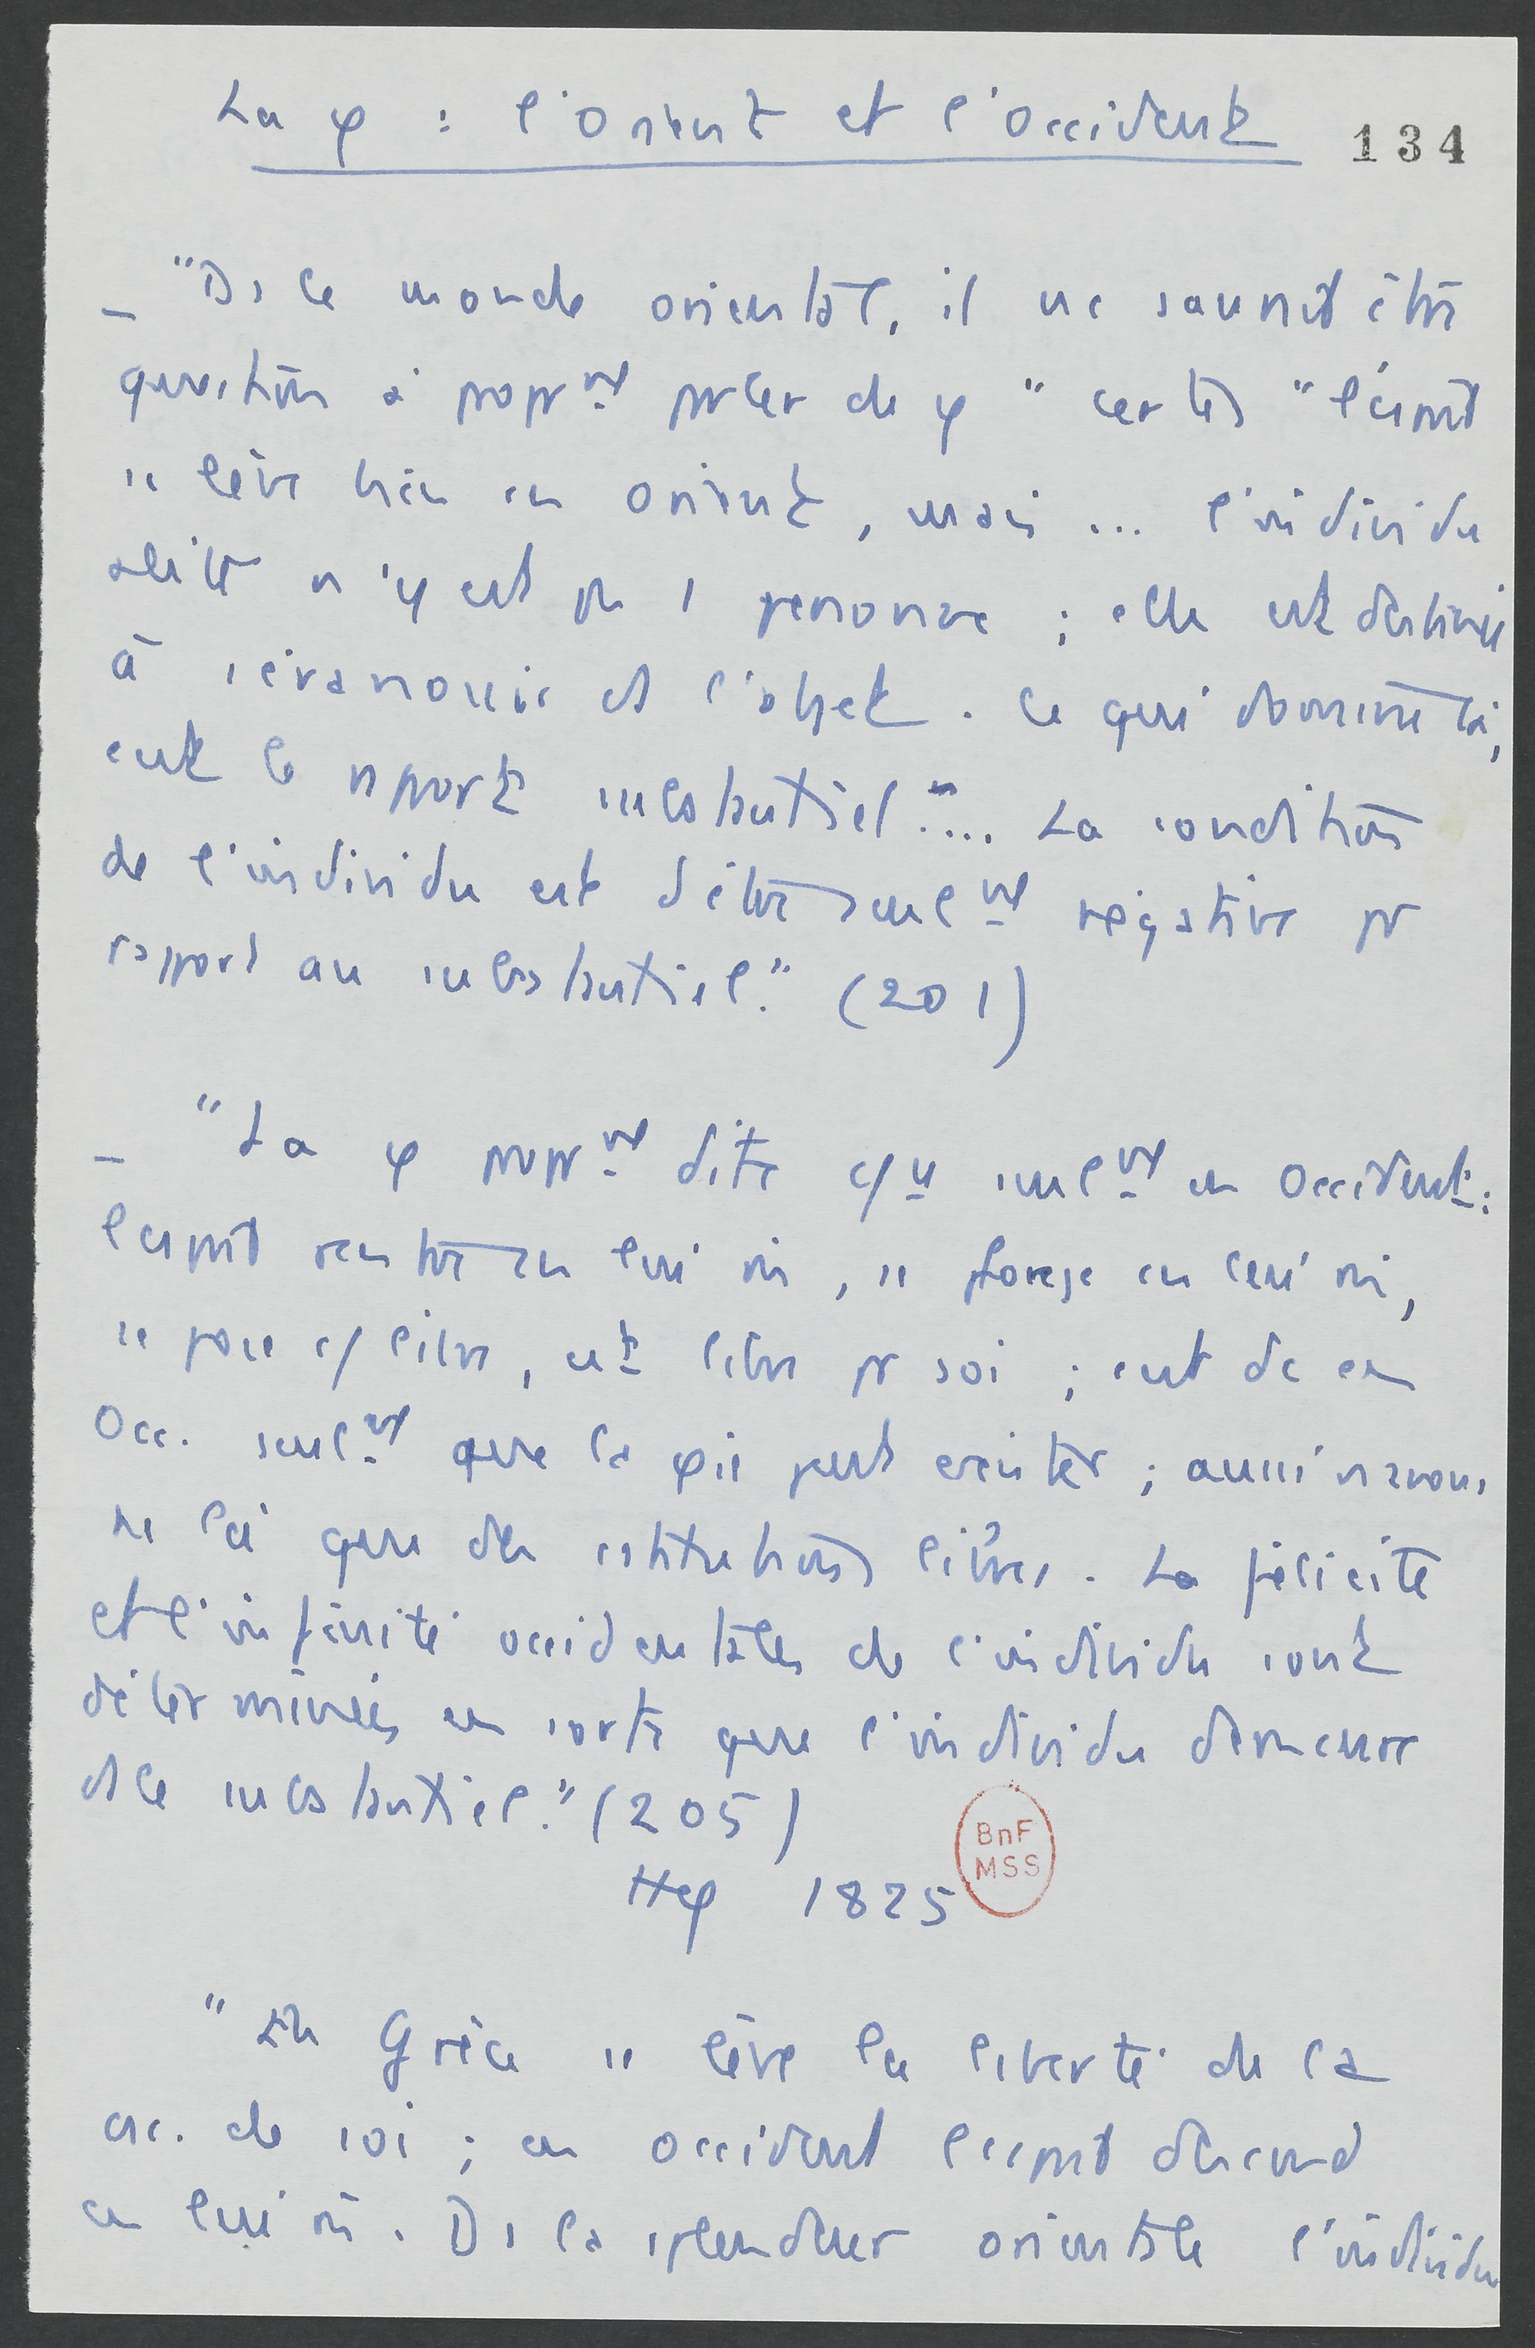 La φ : l'Orient et l'Occident
134
_ "Ds le monde oriental, il ne saurait être
question à propr^mt parler de φ" certes "l'esprit
se lève bien en Orient, mais ... l'individu
alité n'y est pas 1 personne ; elle est destinée
à s'évanouir ds l'objet. Ce qui domine là,
c'est le rapport substantiel"... La condition
de l'individu est d'être seul^mt négative pr
rapport au substantiel." (201)
_ "La φ propr^mt dite c/ce seul^mt en Occident :
l'esprit rentre en lui m, se plonge en lui m,
se pose c/ libre, est libre pr soi ; c'est dc en
Occ. seul^mt que la φie peut exister ; aussi n'avons
ns là que des constitutions libres. La félicité
et l'infinité occidentales de l'individu sont
déterminées en sorte que l'individu demeure
ds le substantiel." (205)
Heg 1825
BnF
MSS
"En Grèce se lève la liberté de la
csc. de soi ; en Occident l'esprit descend
en lui m. Ds la splendeur orientale l'individu